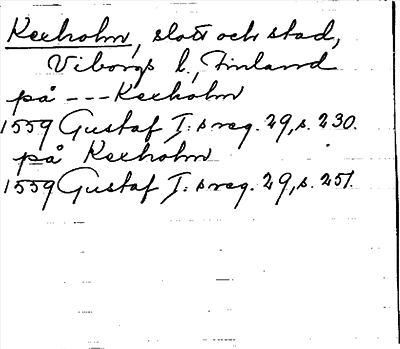 Kexholm, slott och stad,
Viborgs l., Finland
på --- Kexholm
1559 Gustaf I:s reg. 29, s. 230.
på Kexholm
1559 Gustaf I:s reg. 29, s. 251.